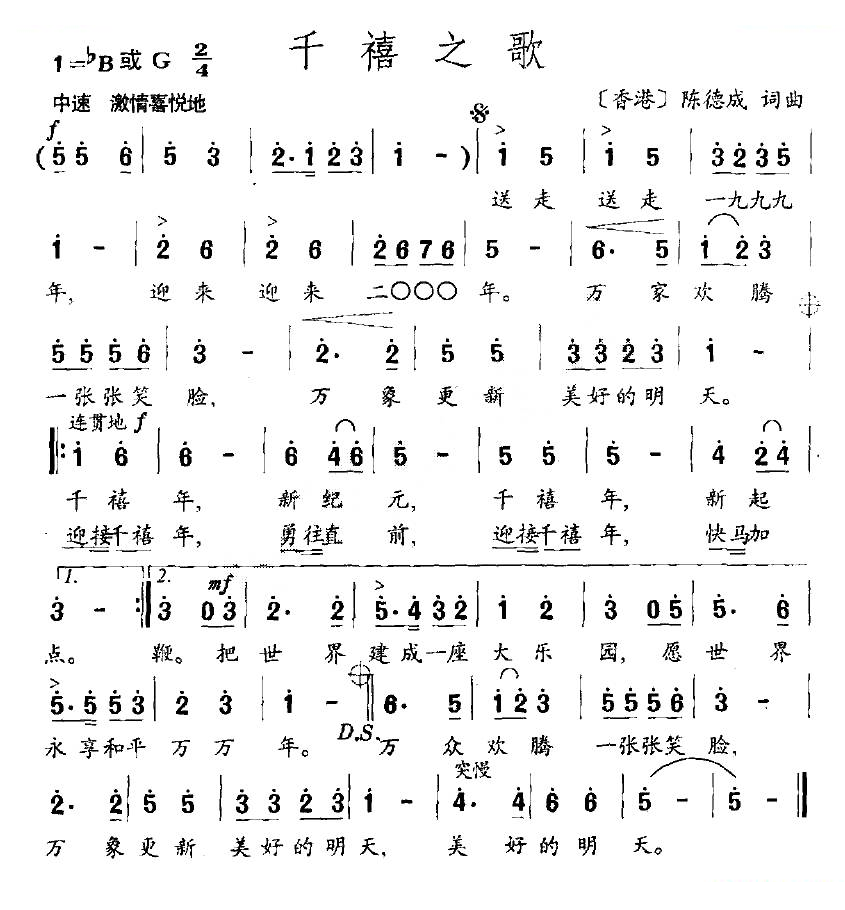 千禧之歌
1=♭B或 G 2/4
中速 激情喜悦地
〔香港〕陈德成 词曲
f
(5 5 6 | 5 3 | 2·1 2 3 | 1 - ) | 1 5 | 1 5 | 3 2 3 5
送走 送走 一九九九
1 - | 2 6 | 2 6 | 2 6 7 6 | 5 - | 6· 5 | 1 2 3
年, 迎来 迎来 二〇〇〇 年。 万 家 欢 腾
5 5 5 6 | 3 - | 2· 2 | 5 5 | 3 3 2 3 | 1 -
一张张笑 脸, 万 象更新 美好的明 天。
连贯地 f
1 6 | 6 - | 6 4 6 | 5 - | 5 5 | 5 - | 4 2 4
千禧 年, 新纪 元, 千禧 年, 新起
迎接千禧 年, 勇往直 前, 迎接千禧 年, 快马加
1. 2. mf
3 - :| 3 0 3 | 2· 2 | 5·4 3 2 | 1 2 | 3 0 5 | 5· 6
点。 鞭。把 世 界 建成一座 大 乐 园, 愿 世 界
5·5 5 3 | 2 3 | 1 - || 6· 5 | 1 2 3 | 5 5 5 6 | 3 -
D.S.
永享和平 万 万 年。 万 众 欢 腾 一张张笑 脸,
突慢
2· 2 | 5 5 | 3 3 2 3 | 1 - | 4· 4 | 6 6 | 5 - | 5 - ||
万 象更新 美好的明天, 美 好的明 天。